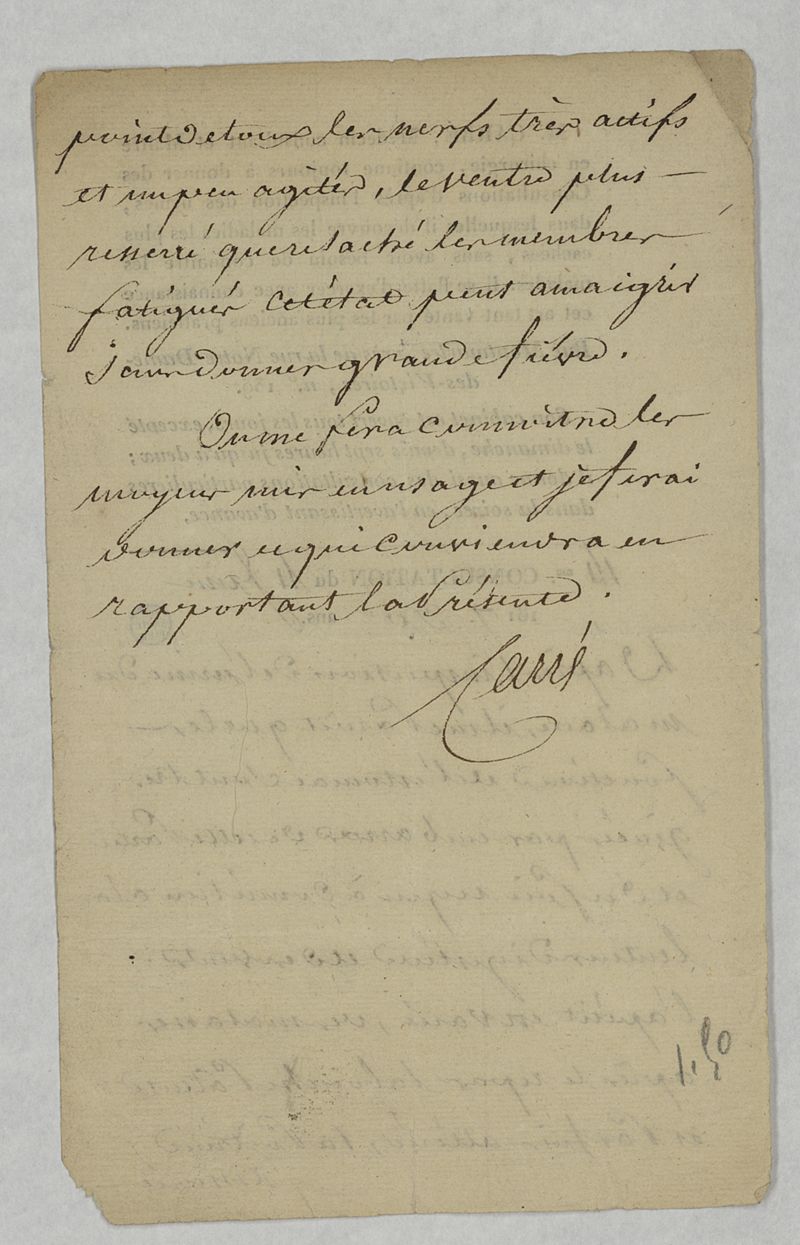 point de toux les nerfs très actifs
et un peu agités, le ventre plus —
resserré que relaché les membres
fatigués cet état peut amaigrir
sans donner grande fièvre.
On me fera connoitre les
moyens mis en usage et je ferai
donner ce qui conviendra en
rapportant la Présente.
Carré
1.50